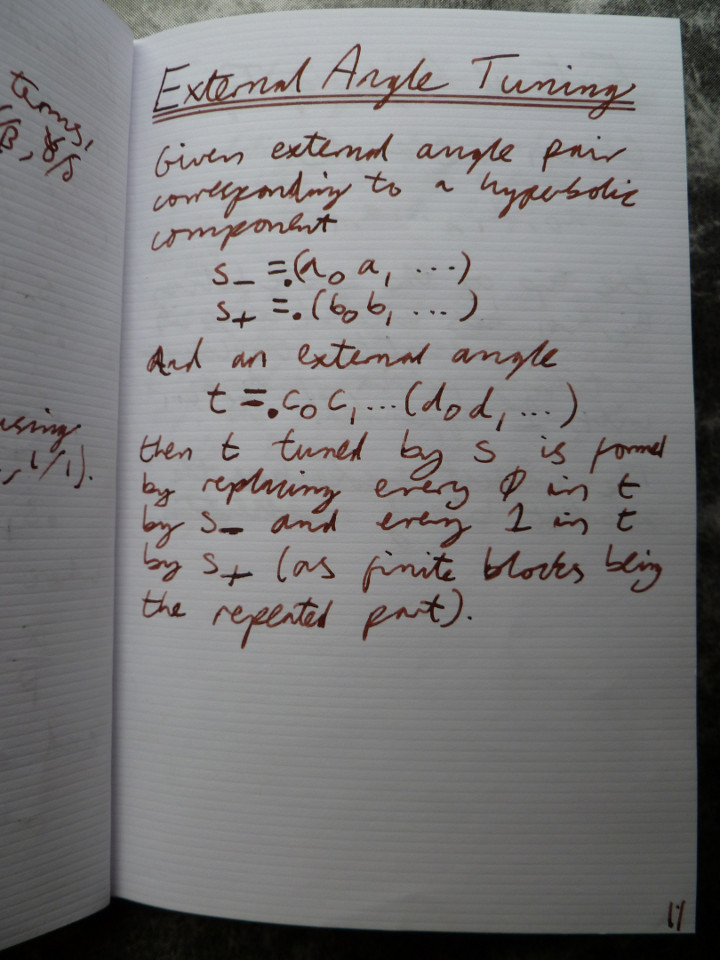 terms,
/β, γ/δ
using
, 1/1).
External Angle Tuning
Given external angle pair
corresponding to a hyperbolic
component
s₋ = .(a₀ a₁ ...)
s₊ = .(b₀ b₁ ...)
And an external angle
t = .c₀ c₁ ... (d₀ d₁ ...)
then t tuned by s is formed
by replacing every 0 in t
by s₋ and every 1 in t
by s₊ (as finite blocks being
the repeated part).
11